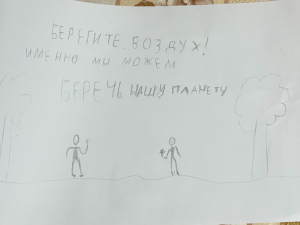 БЕРЕГИТЕ ВОЗДУХ!
ИМЕННО МЫ МОЖЕМ
БЕРЕЧЬ НАШУ ПЛАНЕТУ